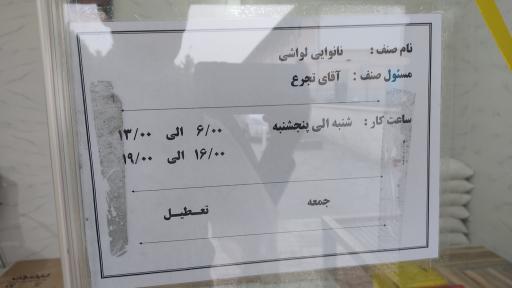 نام صنف : نانوایی لواشی
مسئول صنف : آقای تجرع
ساعت کار : شنبه الی پنجشنبه ۶/۰۰ الی ۱۳/۰۰
۱۶/۰۰ الی ۱۹/۰۰
جمعه تعطیل